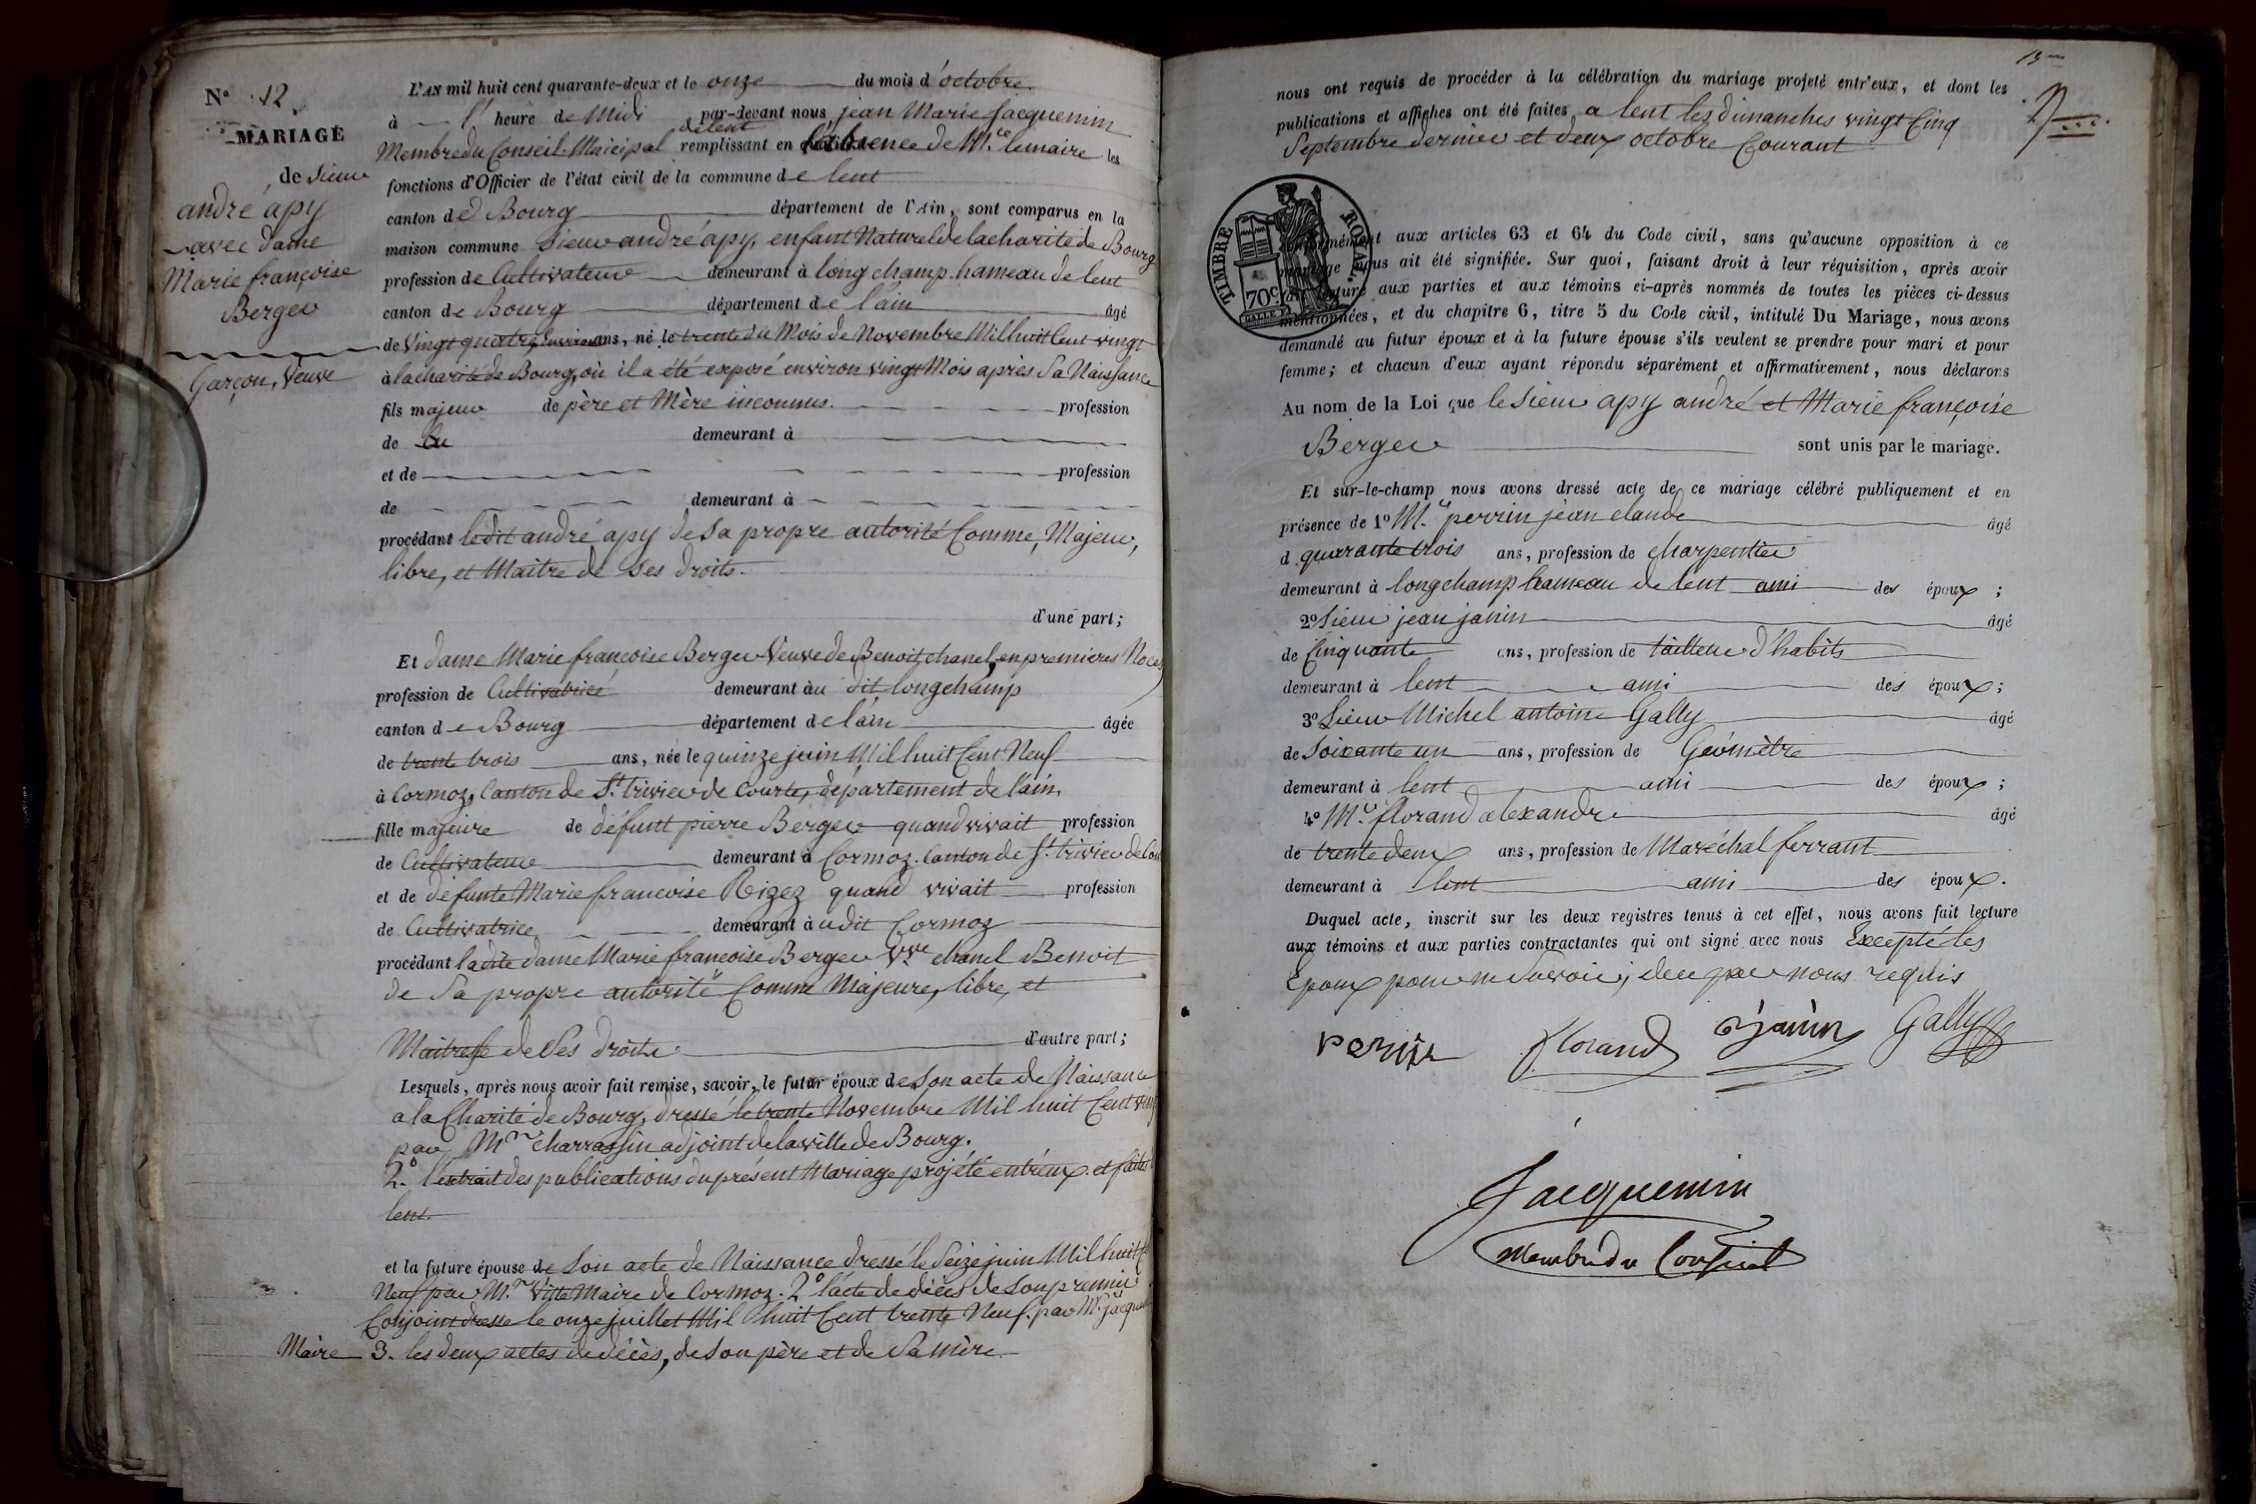 N° 12
MARIAGE
de Sieur
andré apy
avec dame
Marie françoise
Berger
Garçon, Veuve
L'AN mil huit cent quarante-deux et le onze du mois d'octobre
à l' heure de Midi par-devant nous, jean Marie Jacquemin
de lent
Membre du Conseil Municipal remplissant en l'absence de Mr. le maire les
fonctions d'Officier de l'état civil de la commune de lent
canton de Bourg département de l'Ain, sont comparus en la
maison commune Sieur andré apy, enfant Naturel de la charité de Bourg
profession de Cultivateur demeurant à long champ. hameau de lent
canton de Bourg département de l'ain âgé
de Vingt quatre environ ans, né le trente du Mois de Novembre Mil huit Cent vingt
à la charité de Bourg, où il a été exposé environ vingt Mois après Sa Naissance
fils majeur de père et Mère inconnus. profession
de demeurant à
et de profession
de demeurant à
procédant le dit andré apy de Sa propre autorité Comme, Majeur,
libre, et Maitre de Ses droits.
d'une part;
Et dame Marie françoise Berger Veuve de Benoit chanel, en premières Noces
profession de Cultivatrice demeurant au dit longchamp
canton de Bourg département de l'ain âgée
de trente trois ans, née le quinze juin Mil huit Cent Neuf
à Cormoz, Canton de St. trivier de Courte, département de l'ain,
fille majeure de défunt pierre Berger quand vivait profession
de Cultivateur demeurant à Cormoz. Canton de St. trivier de Cou
et de défunte Marie francoise Rizez quand vivait profession
de Cultivatrice demeurant à udit Cormoz
procédant ladite dame Marie francoise Berger Vve chanel Benoit
de Sa propre autorité Comme Majeure, libre, et
Maitresse de Ses droits. d'autre part;
Lesquels, après nous avoir fait remise, savoir, le futur époux de Son acte de Naissance
a la Charité de Bourg, dressé le trente Novembre Mil huit Cent vingt
par Mr charrassin adjoint de la ville de Bourg.
2°. l'extrait des publications du présent Mariage projété entr'eux. et faites
lent.
et la future épouse de Son acte de Naissance dressé le Seize juin Mil huit
Neuf par Mr. Maire de Cormoz. 2° l'acte de décès de Son premier
Conjoint dressé le onze juillet Mil huit Cent trente Neuf. par Mr.
Maire 3. les deux actes de décès, de Son père et de Sa mère.
nous ont requis de procéder à la célébration du mariage projeté entr'eux, et dont les
publications et affiches ont été faites, a lent les dimanches vingt Cinq
Septembre dernier et deux octobre Courant
TIMBRE ROYAL
70c
aux articles 63 et 64 du Code civil, sans qu'aucune opposition à ce
mariage nous ait été signifiée. Sur quoi, faisant droit à leur réquisition, après avoir
lecture aux parties et aux témoins ci-après nommés de toutes les pièces ci-dessus
mentionnées, et du chapitre 6, titre 5 du Code civil, intitulé Du Mariage, nous avons
demandé au futur époux et à la future épouse s'ils veulent se prendre pour mari et pour
femme; et chacun d'eux ayant répondu séparément et affirmativement, nous déclarons
Au nom de la Loi que le Sieur apy andré et Marie françoise
Berger sont unis par le mariage.
Et sur-le-champ nous avons dressé acte de ce mariage célébré publiquement et en
présence de 1° Mr. perrin jean claude âgé
d quarante trois ans, profession de charpentier
demeurant à longchamp hameau de lent ami des époux;
2° Sieur jean janin âgé
de Cinquante ans, profession de tailleur d'habits
demeurant à lent ami des époux;
3° Sieur Michel antoine Gally âgé
de Soixante un ans, profession de Géomètre
demeurant à lent ami des époux;
4° Mr. florand alexandre âgé
de trente deux ans, profession de Maréchal ferrant
demeurant à lent ami des époux.
Duquel acte, inscrit sur les deux registres tenus à cet effet, nous avons fait lecture
aux témoins et aux parties contractantes qui ont signé avec nous Excepté les
Epoux pour ne Savoir, de ce par nous requis
perrin florand janin Gally
Jacquemin
Membre du Conseil